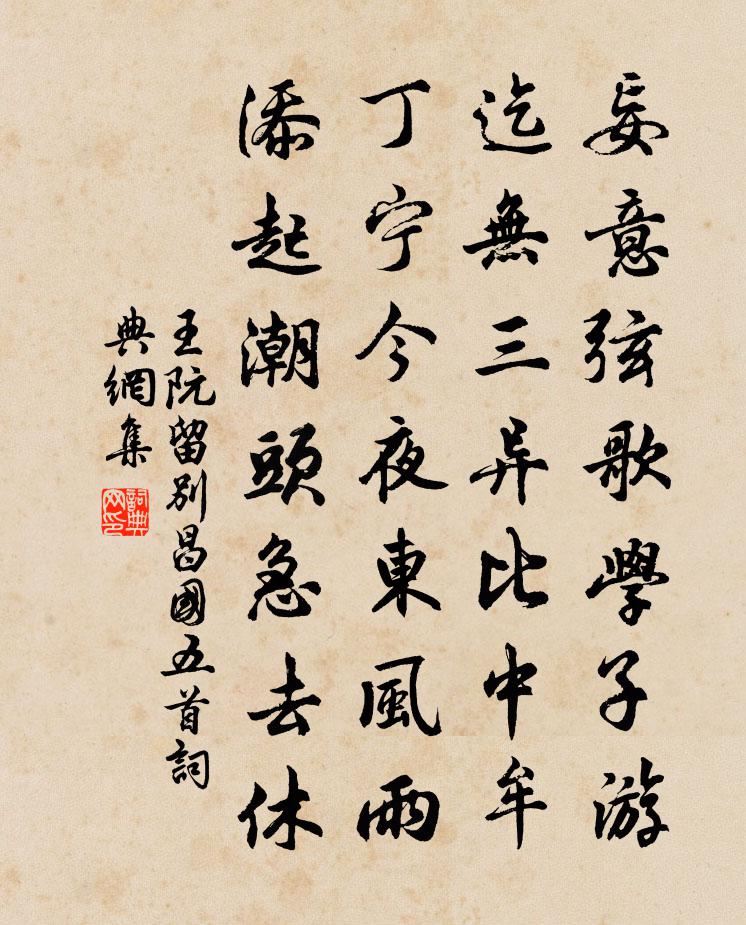 妄意弦歌學子游
迄無三异比中牟
丁宁今夜東風雨
添起潮頭急去休
王阮留别昌國五首詞
典網集
詞典网印